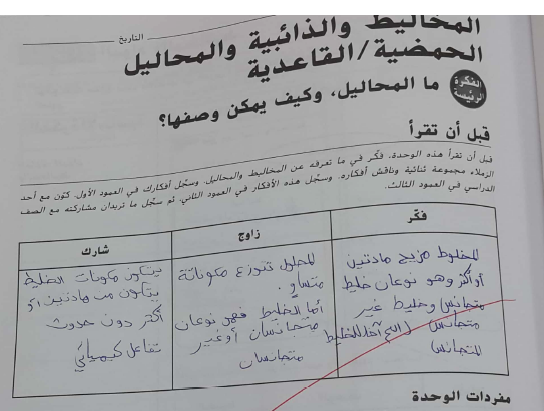 المخاليط والذائبية والمحاليل
التاريخ
الحمضية/القاعدية
الفكرة الرئيسة
ما المحاليل، وكيف يمكن وصفها؟
قبل أن تقرأ
قبل أن تقرأ هذه الوحدة، فكّر في ما تعرفه عن المخاليط والمحاليل. وسجّل أفكارك في العمود الأول. كوّن مع أحد
الزملاء مجموعة ثنائية وناقش أفكاره. وسجّل هذه الأفكار في العمود الثاني. ثم سجّل ما تريدان مشاركته مع الصف
الدراسي في العمود الثالث.
فكّر
المخلوط مزيج مادتين
أو أكثر وهو نوعان خليط
متجانس وخليط غير
متجانس (اسم آخر للخليط
المتجانس
زاوج
المحلول تتوزع مكوناتة
متساو.
أما الخليط فهن نوعان
متجانسان أو غير
متجانسان
شارك
يتكون مكونات الخليط
يتكون من مادتين أو
أكثر دون حدوث
تفاعل كيميائي
مفردات الوحدة